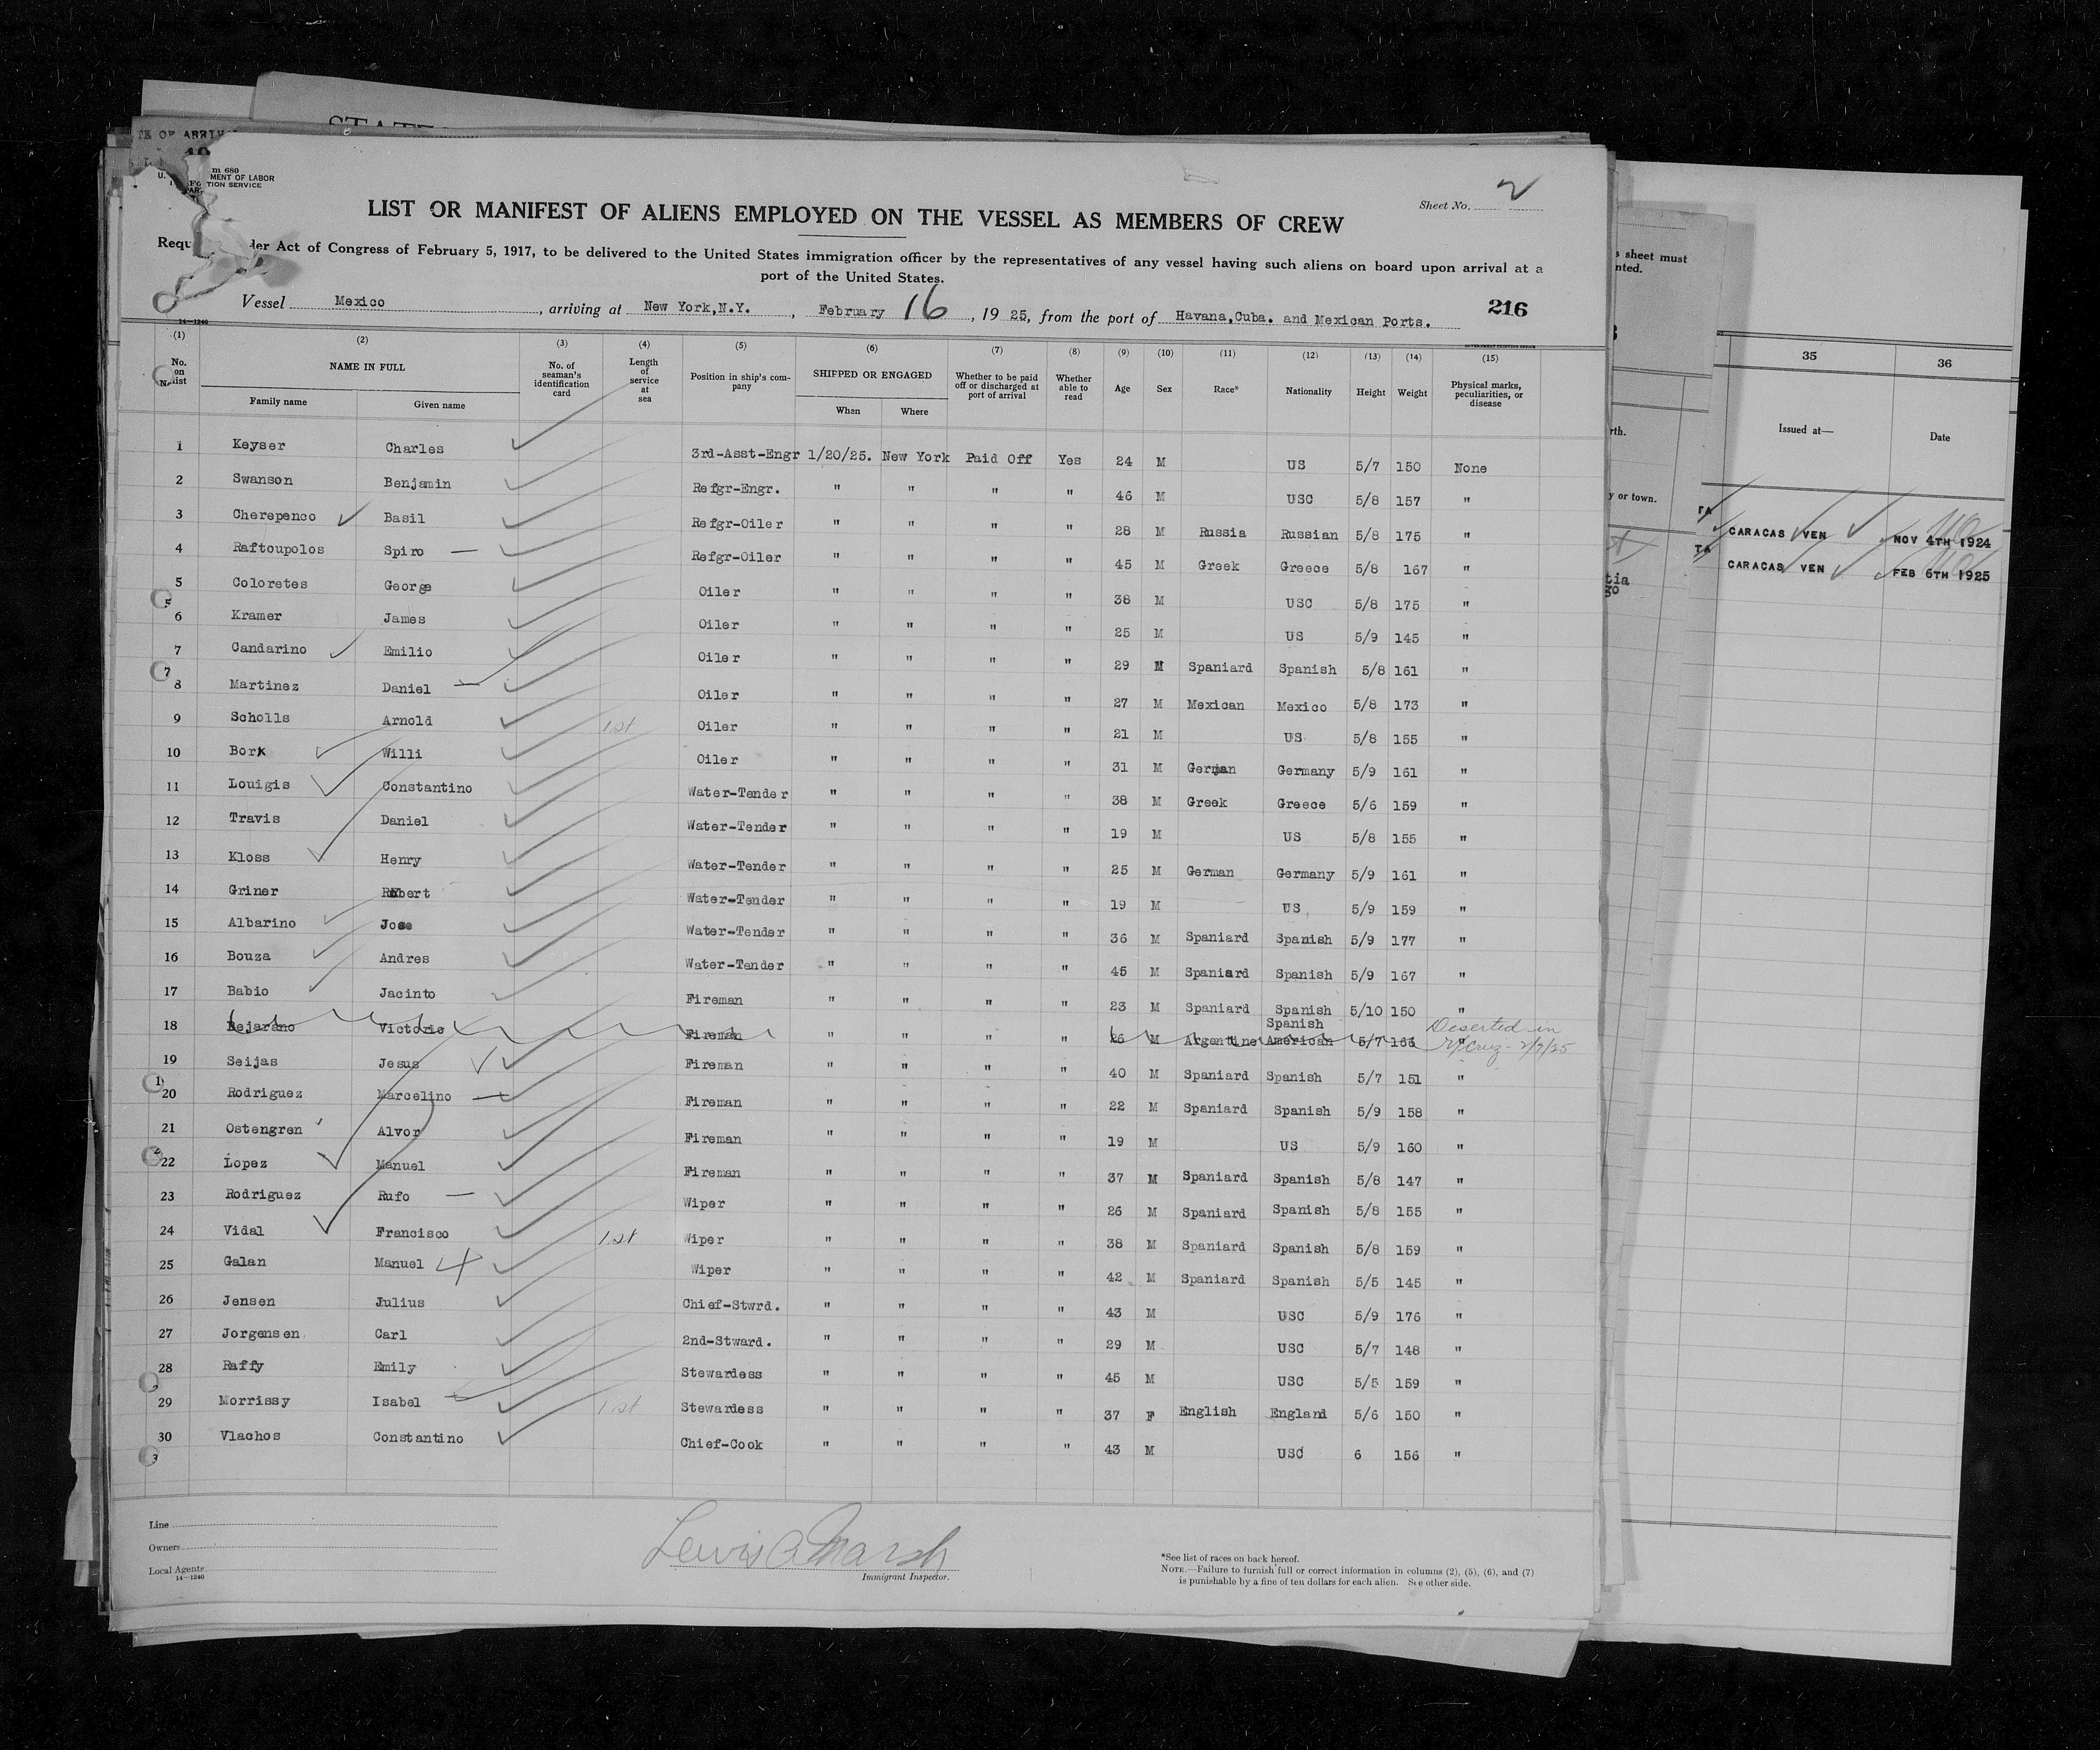 STATE
TE OF ARRIV
m 680
U.
MENT OF LABOR
TION SERVICE
Sheet No. 2
LIST OR MANIFEST OF ALIENS EMPLOYED ON THE VESSEL AS MEMBERS OF CREW
Requ der Act of Congress of February 5, 1917, to be delivered to the United States immigration officer by the representatives of any vessel having such aliens on board upon arrival at a
port of the United States.
Vessel Mexico, arriving at New York,N.Y., February 16, 1925, from the port of Havana,Cuba. and Mexican Ports. 216
14—1240
(1) (2) (3) (4) (5) (6) (7) (8) (9) (10) (11) (12) (13) (14) (15)
No. on list NAME IN FULL No. of seaman's identification card Length of service at sea Position in ship's company SHIPPED OR ENGAGED Whether to be paid off or discharged at port of arrival Whether able to read Age Sex Race* Nationality Height Weight Physical marks, peculiarities, or disease
Family name Given name When Where
1 Keyser Charles 3rd-Asst-Engr 1/20/25. New York Paid Off Yes 24 M US 5/7 150 None
2 Swanson Benjamin Refgr-Engr. " " " " 46 M USC 5/8 157 "
3 Cherepenco Basil Refgr-Oiler " " " " 28 M Russia Russian 5/8 175 "
4 Raftoupolos Spiro Refgr-Oiler " " " " 45 M Greek Greece 5/8 167 "
5 Coloretes George Oiler " " " " 38 M USC 5/8 175 "
6 Kramer James Oiler " " " " 25 M US 5/9 145 "
7 Candarino Emilio Oiler " " " " 29 M Spaniard Spanish 5/8 161 "
8 Martinez Daniel Oiler " " " " 27 M Mexican Mexico 5/8 173 "
9 Scholls Arnold 1st Oiler " " " " 21 M US 5/8 155 "
10 Bork Willi Oiler " " " " 31 M German Germany 5/9 161 "
11 Louigis Constantino Water-Tender " " " " 38 M Greek Greece 5/6 159 "
12 Travis Daniel Water-Tender " " " " 19 M US 5/8 155 "
13 Kloss Henry Water-Tender " " " " 25 M German Germany 5/9 161 "
14 Griner Robert Water-Tender " " " " 19 M US 5/9 159 "
15 Albarino Jose Water-Tender " " " " 36 M Spaniard Spanish 5/9 177 "
16 Bouza Andres Water-Tender " " " " 45 M Spaniard Spanish 5/9 167 "
17 Babio Jacinto Fireman " " " " 23 M Spaniard Spanish 5/10 150 "
18 Bejarano Victorio Fireman " " " " 26 M Argentine Spanish American 5/7 163 " Deserted in V/Cruz - 2/7/25
19 Seijas Jesus Fireman " " " " 40 M Spaniard Spanish 5/7 151 "
20 Rodriguez Marcelino Fireman " " " " 22 M Spaniard Spanish 5/9 158 "
21 Ostengren Alvor Fireman " " " " 19 M US 5/9 160 "
22 Lopez Manuel Fireman " " " " 37 M Spaniard Spanish 5/8 147 "
23 Rodriguez Rufo Wiper " " " " 26 M Spaniard Spanish 5/8 155 "
24 Vidal Francisco 1st Wiper " " " " 38 M Spaniard Spanish 5/8 159 "
25 Galan Manuel Wiper " " " " 42 M Spaniard Spanish 5/5 145 "
26 Jensen Julius Chief-Stwrd. " " " " 43 M USC 5/9 176 "
27 Jorgensen Carl 2nd-Stward. " " " " 29 M USC 5/7 148 "
28 Raffy Emily Stewardess " " " " 45 M USC 5/5 159 "
29 Morrissy Isabel 1st Stewardess " " " " 37 F English England 5/6 150 "
30 Vlachos Constantino Chief-Cook " " " " 43 M USC 6 156 "
Line
Owners
Local Agents
14—1240
Lewis A Marsh
Immigrant Inspector.
*See list of races on back hereof.
NOTE.—Failure to furnish full or correct information in columns (2), (5), (6), and (7)
is punishable by a fine of ten dollars for each alien. See other side.
s sheet must
nted.
rth.
y or town.
tia
go
35 36
Issued at— Date
CARACAS VEN NOV 4TH 1924
CARACAS VEN FEB 6TH 1925